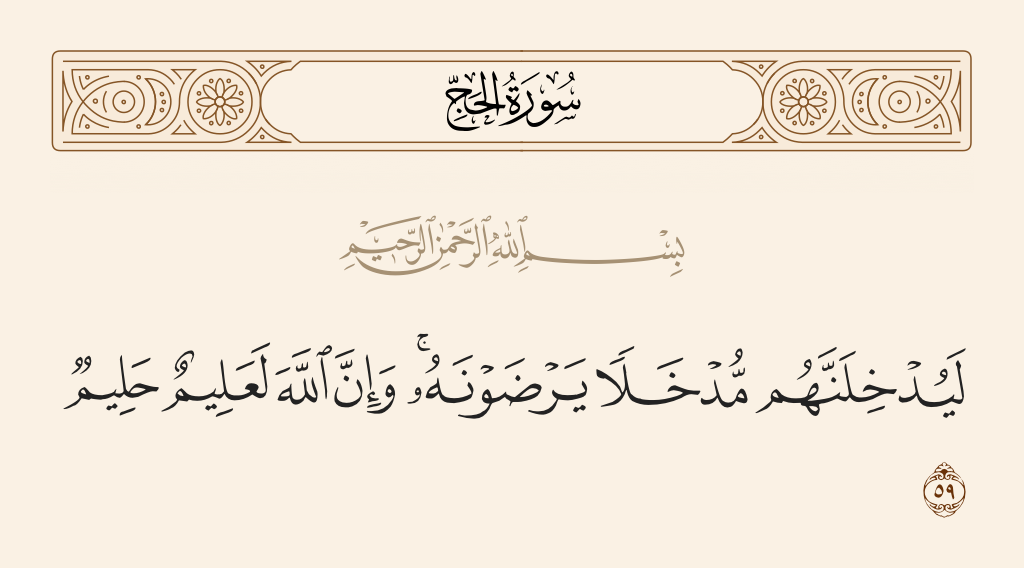 سُورَةُ الْحَجِّ
بِسْمِ ٱللَّهِ ٱلرَّحْمَٰنِ ٱلرَّحِيمِ
لَيُدْخِلَنَّهُم مُّدْخَلًا يَرْضَوْنَهُۥ ۚ وَإِنَّ ٱللَّهَ لَعَلِيمٌ حَلِيمٌ
٥٩